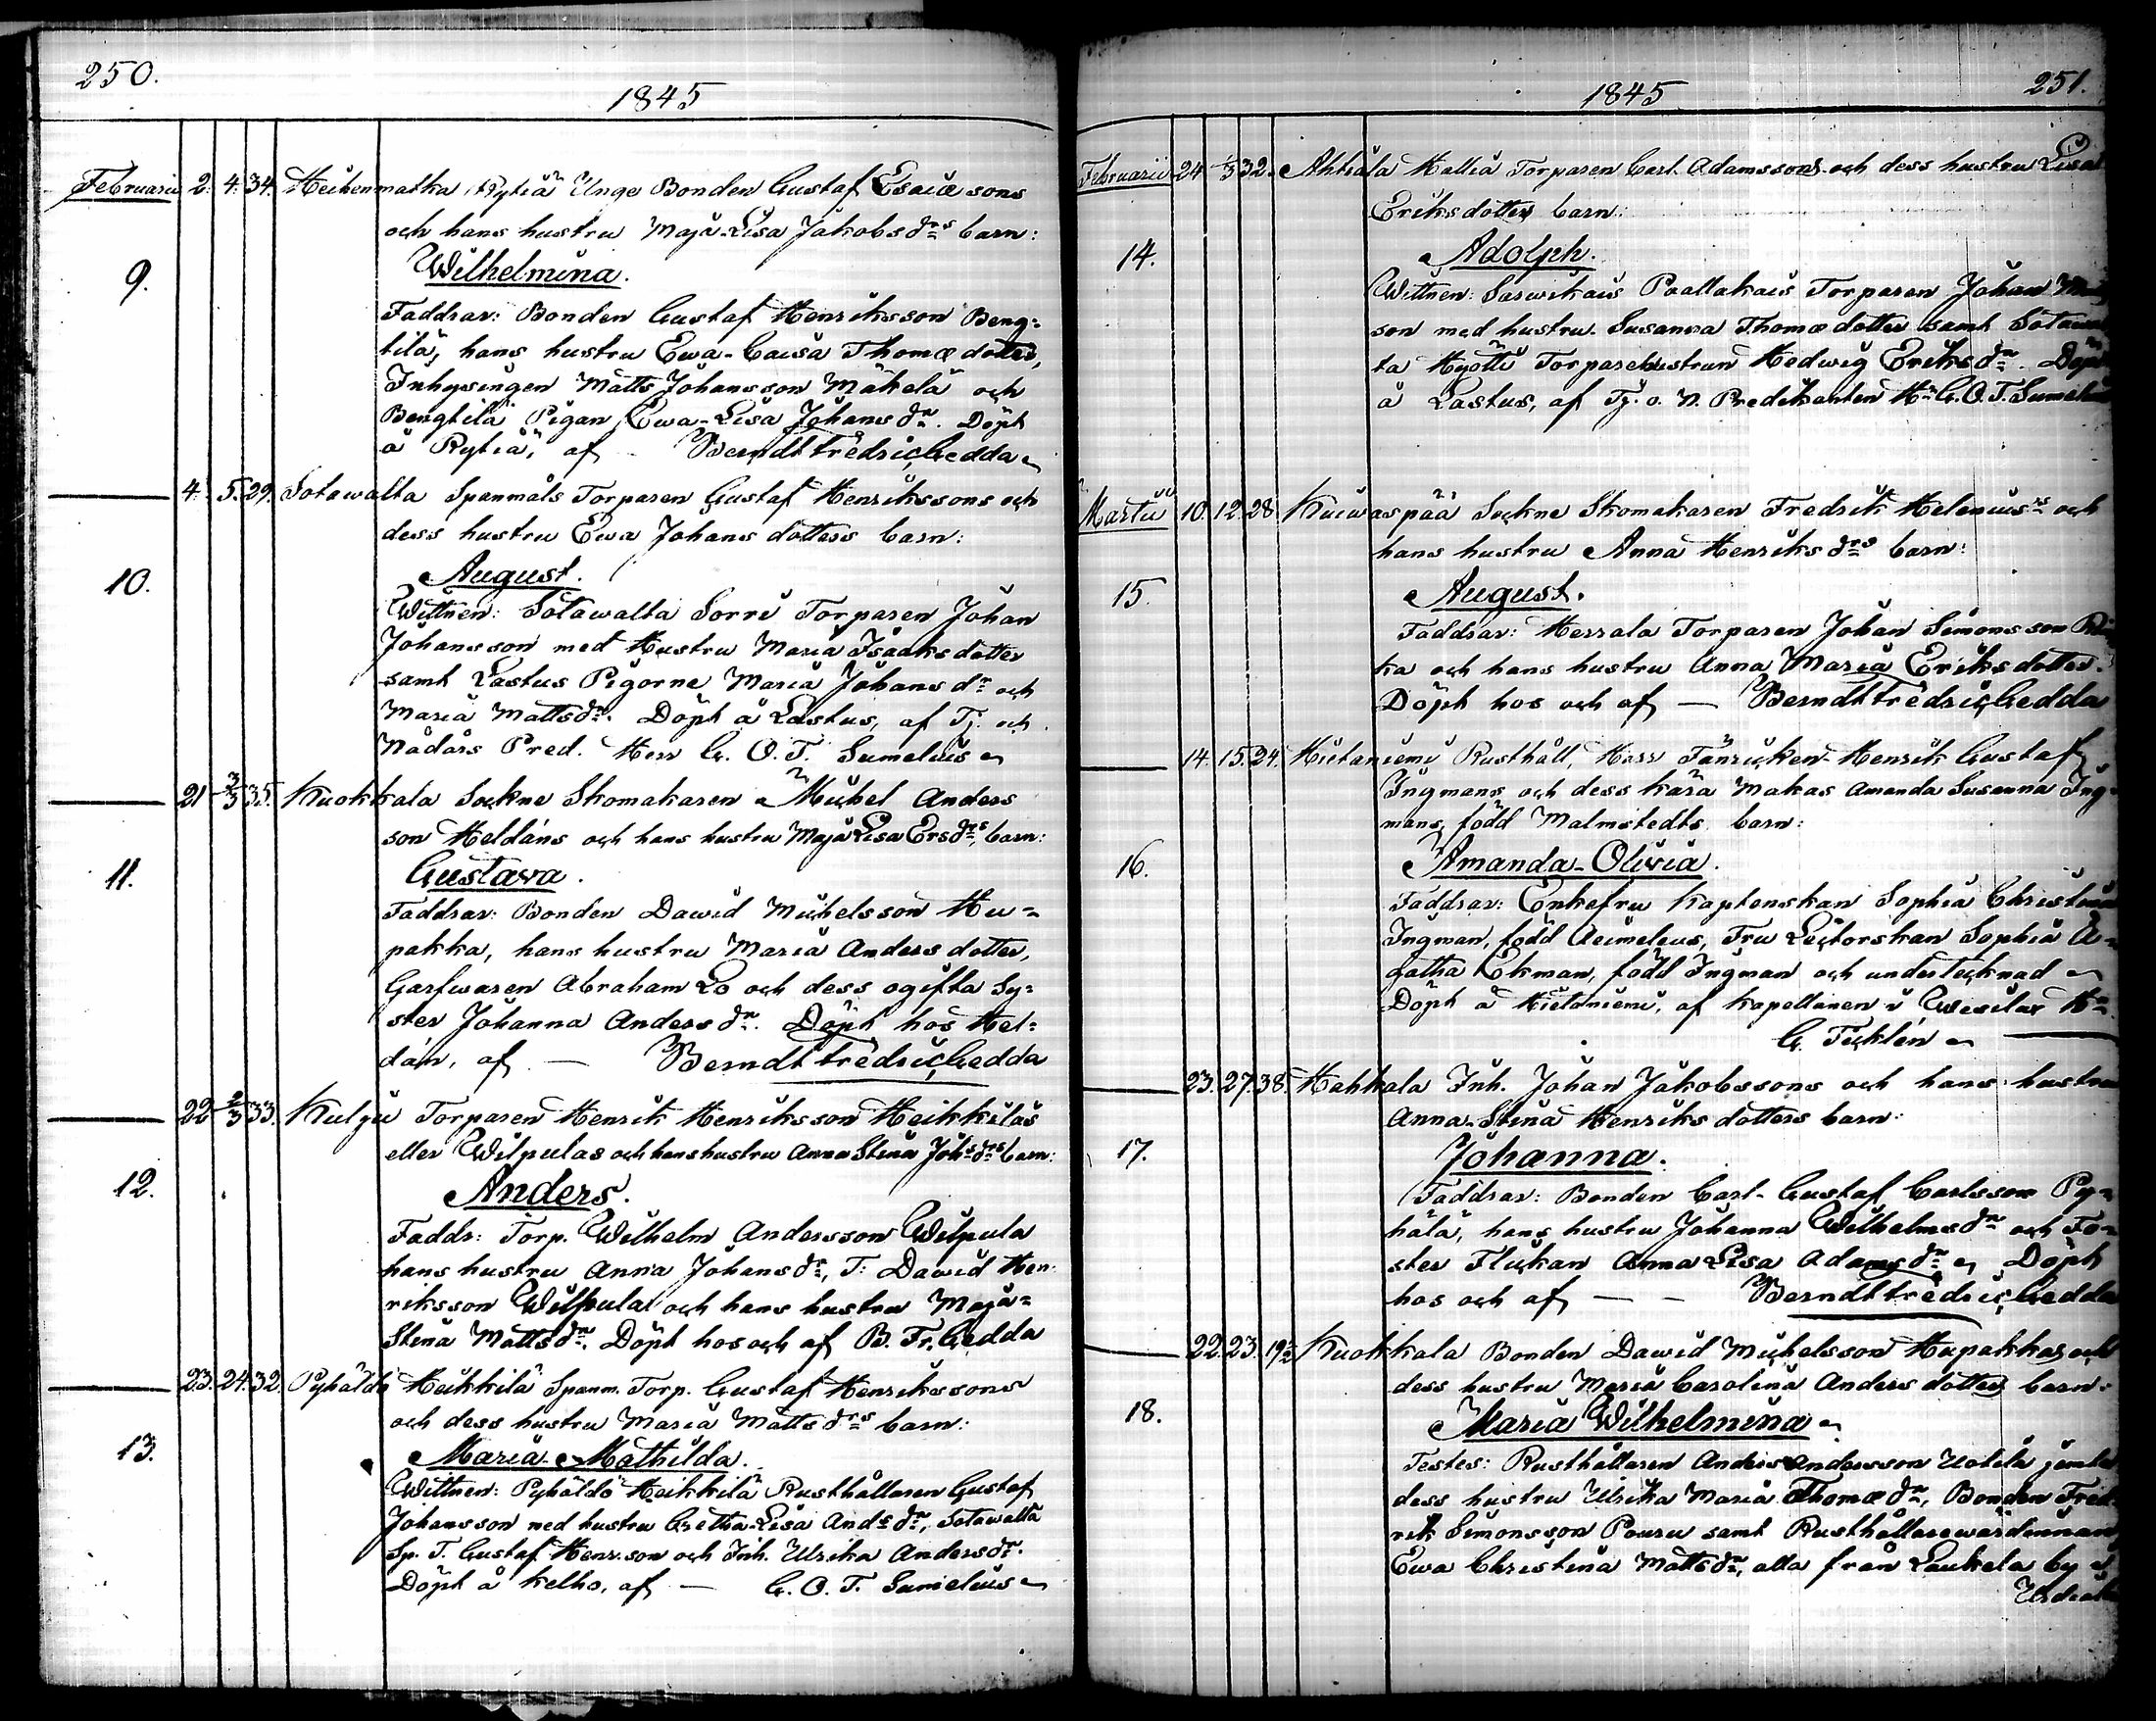 250.
1845
Februarii 2. 4. 34. Heikenmatka Rytiä Unge Bonden Gustaf Esaiæ sons
och hans hustru Maja-Lisa Jakobs drs barn:
9. Wilhelmina.
Faddrar: Bonden Gustaf Henriksson Beng-
tilä, hans hustru Ewa-Caisa Thomæ dotter,
Inhysingen Matts Johansson Mäkelä och
Bengtilä Pigan Ewa-Lisa Johans dr. Döpt
å Rytiä, af — Berndt Fredric Gedda
4. 5. 29. Sotawalta Spanmåls Torparen Gustaf Henrikssons och
dess hustru Ewa Johans dotters barn:
10. August.
Wittnen: Sotawalta Sorri Torparen Johan
Johansson med Hustru Maria Isaaks dotter
samt Lastus Pigorne Maria Johans dr och
Maria Matts dr. Döpt å Lastus, af Tj. och
Nådårs Pred. Herr G. O. T. Sumelius
21 3/3 35. Kuokkala Sockne Skomakaren Michel Anders
son Heldáns och hans hustru Maja Lisa Ers drs, barn:
11. Gustava.
Faddrar: Bonden Dawid Michelsson Hu-
pakka, hans hustru Maria Anders dotter,
Garfwaren Abraham Lo och dess ogifta Sy-
ster Johanna Anders dr. Döpt hos Hel-
dán, af — Berndt Fredric Gedda
22 2/3 33. Kulju Torparen Henrik Henriksson Heikkilas
eller Wilpulas och hans hustru Anna Stina Johs drs barn:
12. Anders.
Faddr: Torp. Wilhelm Andersson Wilpula
hans hustru Anna Johans dr, T: Dawid Hen-
riksson Wilpula och hans hustru Maja-
Stina Matts dr. Döpt hos och af B. Fr. Gedda
23. 24. 32. Pyhäldö Heikkilä Spanm. Torp. Gustaf Henrikssons
och dess hustru Maria Matts drs barn:
13. Maria Mathilda.
Wittnen: Pyhäldö Heikkilä Rusthållaren Gustaf
Johansson med hustru Gretha-Lisa Ands dr, Sotawalta
Sp. T. Gustaf Henr.son och Inh. Ulrika Anders dr.
Döpt å Kelho, af — G. O. T. Sumelius
251.
1845
Februarii 24 1/3 32. Ahtiala Hallia Torparen Carl Adamssons och dess hustru Lisa
Eriksdotters barn:
14. Adolph.
Wittnen: Sarwikais Paallakais Torparen Johan
son med hustru Susanna Thomæ dotter samt Sotawal
ta Hyötti Torparehustrun Hedwig Eriks dr. Döpt
å Lastus, af Tj. o. N. Predikanten Hr G. O. T. Sumelius
Martii 10. 12. 28 Kuiwaspää Sockne Skomakaren Fredrik Helenius's och
hans hustru Anna Henriks drs barn:
15. August.
Faddrar: Herrala Torparen Johan Simonsson
ka och hans hustru Anna Maria Eriksdotter.
Döpt hos och af — Berndt Fredric Gedda
14. 15. 24. Hietaniemi Rusthåll, Herr Fänricken Henrik Gustaf
Ingmans och dess kära Makas Amanda Susanna Ing-
mans, född Malmstedts barn:
16. Amanda-Olivia.
Faddrar: Enkefru Kaptenskan Sophia Christina
Ingman, född Aeimeleus, Fru Lectorskan Sophia A-
gatha Ekman, född Ingman och undertecknad
Döpt å Hietaniemi, af Kapellanen i Wesilax Hr
G. Ticklén
23. 27. 38. Hahkala Inh. Johan Jakobssons och hans hustru
Anna-Stina Henriks dotters barn:
17. Johanna.
Faddrar: Bonden Carl-Gustaf Carlsson Py-
hälä, hans hustru Johanna Wilhelms dr och Fo-
ster Flickan Anna Lisa Adams dr Döpt
hos och af — — Berndt Fredric Gedda
22. 23. 19 1/2 Kuokkala Bonden Dawid Michelsson Hupakkas och
dess hustru Maria Carolina Anders dotters barn:
18. Maria Wilhelmina
Testes: Rusthållaren Anders Andersson Uotila jemte
dess hustru Ulrika Maria Thomæ dr, Bonden Fred-
rik Simonsson Pouru samt Rusthållarewärdinnan
Ewa Christina Matts dr, alla från Laukela by